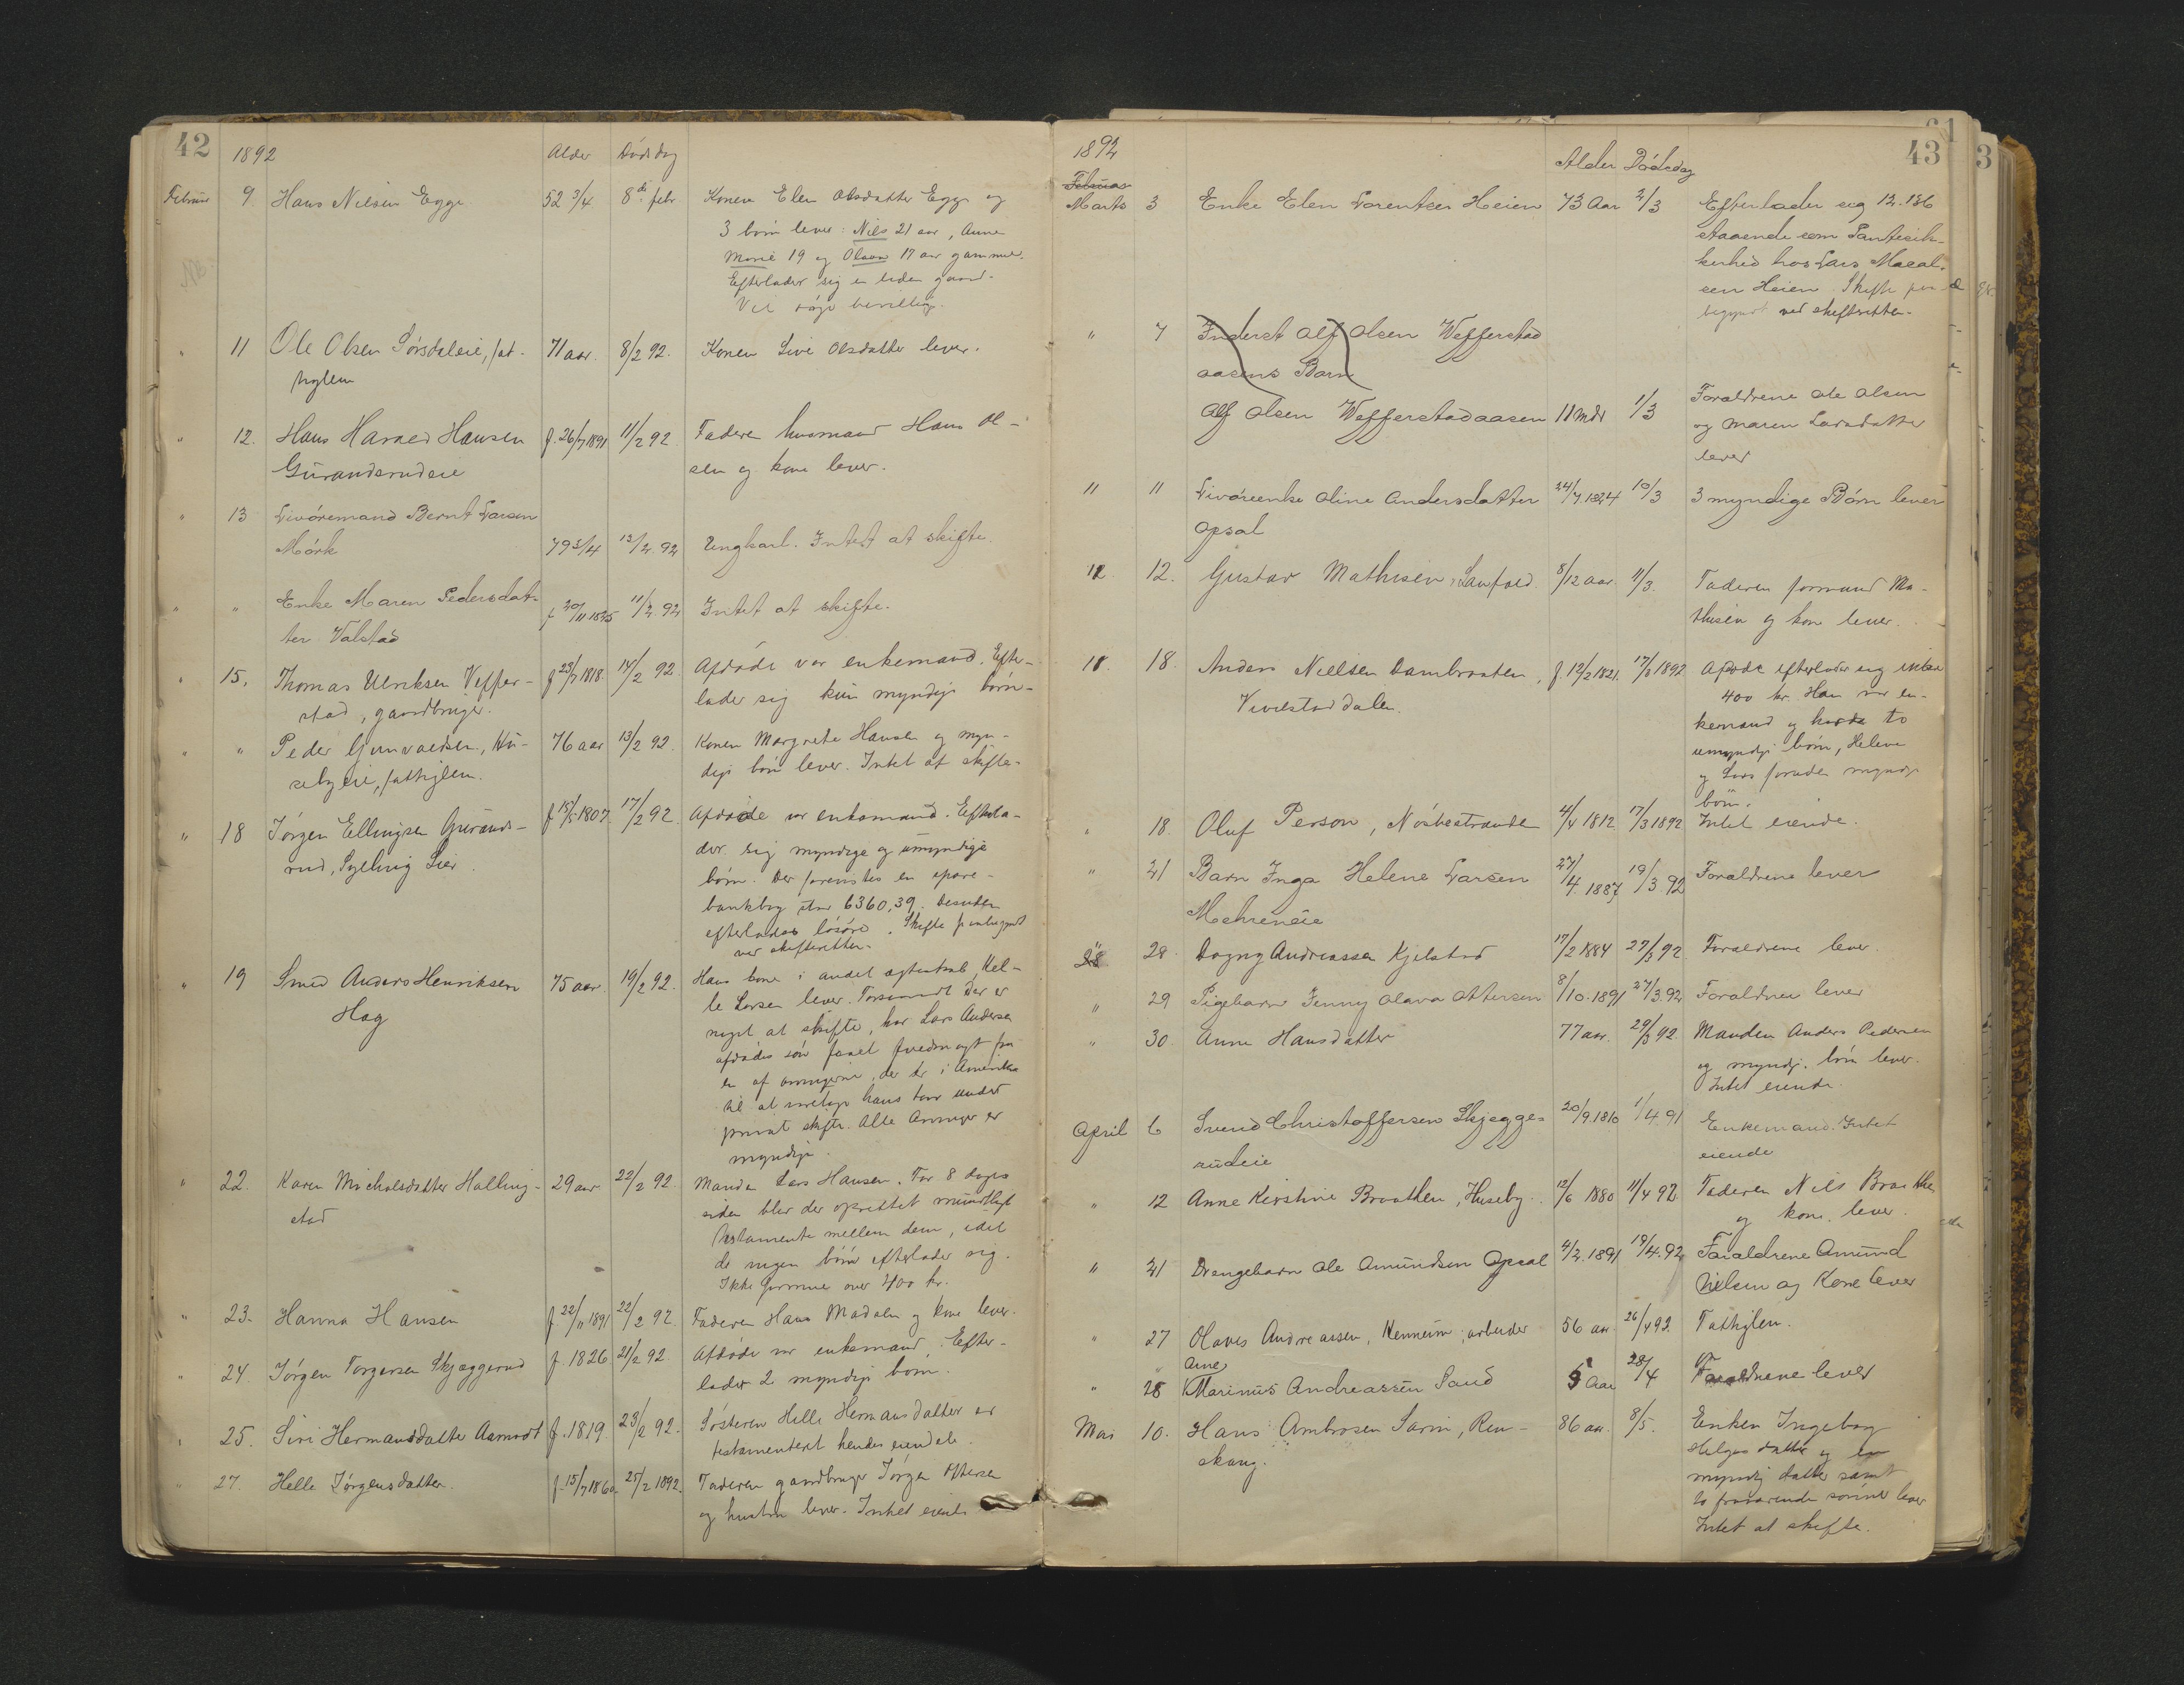 42
1892 Alder Dødsdag
Februar 9. Hans Nilsen Egge 52 3/4 8de febr Konen Elen Olsdatter Egge og
3 børn lever: Nils 21 aar, Anne
Marie 19 og Olaus 17 aar gammel.
Efterlader sig en liden gaard.
Vil søge bevilling.
" 11 Ole Olsen Sørsdaleie, fat- 71 aar. 8/2 92. Konen Live Olsdatter lever.
tiglem
" 12. Hans Harald Hansen f. 26/7 1891 11/2 92 Faderen husmand Hans Ol-
Gurandsrudeie sen og kone lever.
" 13 Livøremand Bernt Larsen
Mørk 79 3/4 13/2 92 Ungkarl. Intet at skifte.
" " Enke Maren Pedersdat- f 20/11 1825 11/2 92 Intet at skifte.
ter Valstad
" 15. Thomas Ulriksen Veffer- f 23/7 1818. 14/2 92. Afdøde var enkemand. Efter-
stad, gaardbruger. lader sig kun myndige børn.
" " Peder Gunvaldsen, Hu- 76 aar 13/2 92. Konen Margrete Hansen og myn-
sebyeie, fattiglem. dige børn lever. Intet at skifte.
" 18 Jørgen Ellingsen Gurands- f 15/5 1807. 17/2 92. Afdøde var enkemand. Efterla-
rud, Sylling Lier. der sig myndige og umyndige
børn. Der forevistes en spare-
bankbog stor 6360,39. Desuden
efterlades løsøre. Skifte paabegyndt
ved skifteretten.
" 19 Smed Anders Henriksen 75 aar. 19/2 92. Hans kone i andet ægteskab, Hel-
Hag le Larsen lever. Forsaavidt der er
noget at skifte, har Lars Andersen
afdødes søn faaet fuldmagt fra
en af arvingerne, der er i Amerika
til at varetage hans tarv under
privat skifte. Alle Arvinger er
myndige.
" 22. Karen Micholsdatter Halling- 29 aar 22/2 92. Manden Lars Hansen. For 8 dage
stad siden blev der oprettet mundtligt
Testamente mellem dem, idet
de ingen børn efterlader sig.
Ikke formue over 400 kr.
" 23. Hanna Hansen f 22/11 1891 22/2 92. Faderen Hans Madsen og kone lever.
" 24. Jørgen Torgersen Skjæggerud f. 1826 21/2 92. Afdøde var enkemand. Efter-
lader 2 myndige børn.
" 25. Siri Hermansdatter Aamodt f. 1819. 23/2 92. Søsteren Helle Hermansdatter er
testamenteret hendes eiendele.
" 27. Helle Jørgensdatter. f. 15/7 1860. 25/2 1892. Faderen gaardbruger Jørgen Ottersen
og hustru lever. Intet eiende
43
1892
Alder Dødsdag
Februar
Marts 3 Enke Elen Lorentsen Heien 73 Aar 2/3 Efterlader sig 12.136
staaende som Pantesik-
kerhed hos Lars Maeal.
sen Heien. Skifte paa
begyndt ved skifteretten.
" 7 Inderst Alf Olsen Wefferstad
aasens Barn
Alf Olsen Wefferstadaasen 11 mdr 1/3 Foraldrene Ole Olsen
og Maren Larsdatter
lever
" 11 Livøreenke Oline Andersdatter 24/7 1824 10/3 3 myndige Børn lever
Opsal
12 12. Gustav Mathisen, Saufald. 8/12 aar. 11/3. Faderen formand Ma-
thisen og kone lever.
18. 18. Anders Nielsen Dambraaten, f. 12/2 1821. 17/3 1892 Afdøde efterlader sig inkl.
Vivelstaddalen. 400 kr. Han var en-
kemand og havde to
umyndige børn, Helene
og Lars foruden myndige
børn.
" 18. Oluf Person, Nøsbestrande 4/4 1812 17/3 1892 Intet eiende.
" 21 Barn Inga Helene Larsen 27/4 1887 19/3 92 Foraldrene lever
Mehreneie
28 28. Dagny Andreassen Kjelstad 17/2 1884 27/3 92 Foraldrene lever.
" 29 Pigebarn Jenny Olava Ottersen 8/10. 1891 27/3.92 Foraldrene lever
" 30. Anne Hansdatter 77 aar. 29/3 92. Manden Anders Pedersen
og myndige børn lever.
Intet eiende.
April 6 Svend Christoffersen Skjegge- 20/9.1810 1/4.91 Enkemand. Intet
rudeie eiende
" 12 Anne Kirstine Braathen, Huseby. 12/6 1880 11/4 92 Faderen Nils Braathen
og kone lever.
" 21 Drengebarn Ole Amundsen Opsal 4/2. 1891 19/4.92 Foraldrene Amund
Nielsen og Kone lever
" 27 Olaves Andreassen, Kenneim, arbeider 56 aar. 26/4 92. Fattiglem.
Arne
" 28 Marinus Andreassen Sand 5 Aar 28/4 Foraldrene lever
Mai 10. Hans Ambrosen Sørm, Ren- 86 aar. 8/5. Enken Ingeborg
skaug. Helgesdatter og en
myndig datter samt
to fraværende sønner lever
Intet at skifte.
61
3